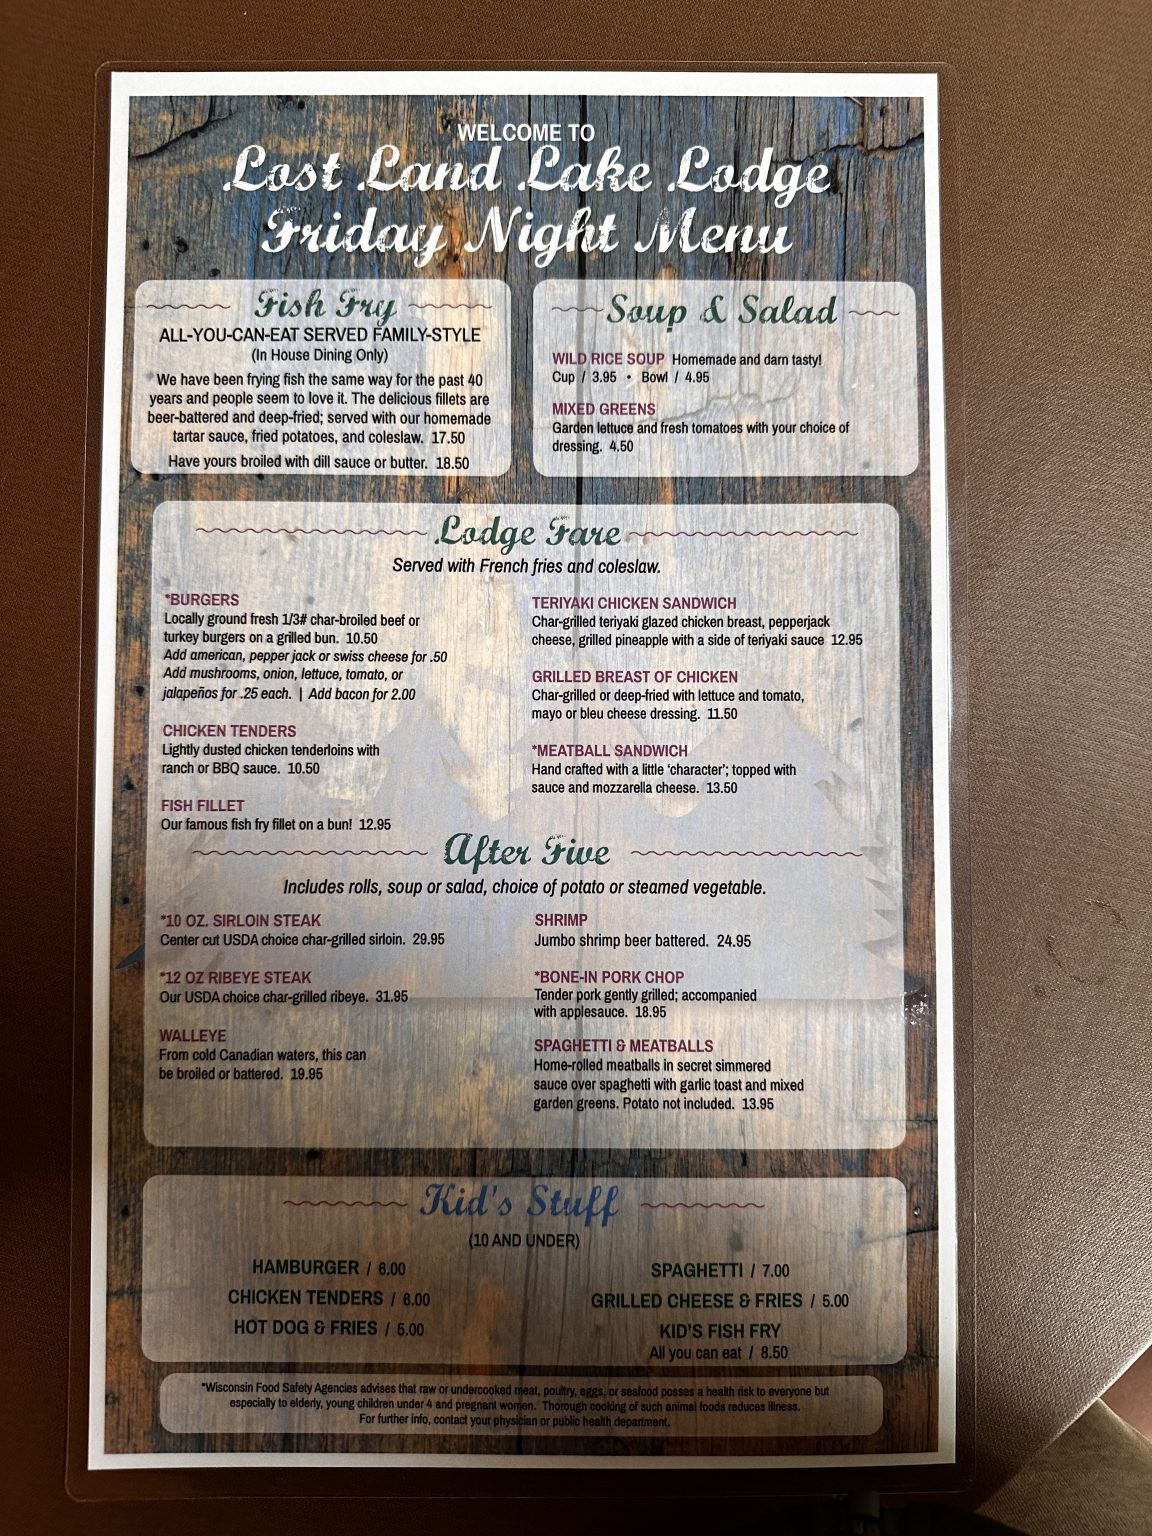 WELCOME TO
Lost Land Lake Lodge
Friday Night Menu
Fish Fry
ALL-YOU-CAN-EAT SERVED FAMILY-STYLE
(In House Dining Only)
We have been frying fish the same way for the past 40
years and people seem to love it. The delicious fillets are
beer-battered and deep-fried; served with our homemade
tartar sauce, fried potatoes, and coleslaw. 17.50
Have yours broiled with dill sauce or butter. 18.50
Soup & Salad
WILD RICE SOUP Homemade and darn tasty!
Cup / 3.95 • Bowl / 4.95
MIXED GREENS
Garden lettuce and fresh tomatoes with your choice of
dressing. 4.50
Lodge Fare
Served with French fries and coleslaw.
*BURGERS
Locally ground fresh 1/3# char-broiled beef or
turkey burgers on a grilled bun. 10.50
Add american, pepper jack or swiss cheese for .50
Add mushrooms, onion, lettuce, tomato, or
jalapeños for .25 each. | Add bacon for 2.00
CHICKEN TENDERS
Lightly dusted chicken tenderloins with
ranch or BBQ sauce. 10.50
FISH FILLET
Our famous fish fry fillet on a bun! 12.95
TERIYAKI CHICKEN SANDWICH
Char-grilled teriyaki glazed chicken breast, pepperjack
cheese, grilled pineapple with a side of teriyaki sauce 12.95
GRILLED BREAST OF CHICKEN
Char-grilled or deep-fried with lettuce and tomato,
mayo or bleu cheese dressing. 11.50
*MEATBALL SANDWICH
Hand crafted with a little ‘character’; topped with
sauce and mozzarella cheese. 13.50
After Five
Includes rolls, soup or salad, choice of potato or steamed vegetable.
*10 OZ. SIRLOIN STEAK
Center cut USDA choice char-grilled sirloin. 29.95
*12 OZ RIBEYE STEAK
Our USDA choice char-grilled ribeye. 31.95
WALLEYE
From cold Canadian waters, this can
be broiled or battered. 19.95
SHRIMP
Jumbo shrimp beer battered. 24.95
*BONE-IN PORK CHOP
Tender pork gently grilled; accompanied
with applesauce. 18.95
SPAGHETTI & MEATBALLS
Home-rolled meatballs in secret simmered
sauce over spaghetti with garlic toast and mixed
garden greens. Potato not included. 13.95
Kid's Stuff
(10 AND UNDER)
HAMBURGER / 6.00
CHICKEN TENDERS / 6.00
HOT DOG & FRIES / 5.00
SPAGHETTI / 7.00
GRILLED CHEESE & FRIES / 5.00
KID'S FISH FRY
All you can eat / 8.50
*Wisconsin Food Safety Agencies advises that raw or undercooked meat, poultry, eggs, or seafood posses a health risk to everyone but
especially to elderly, young children under 4 and pregnant women. Thorough cooking of such animal foods reduces illness.
For further info, contact your physician or public health department.